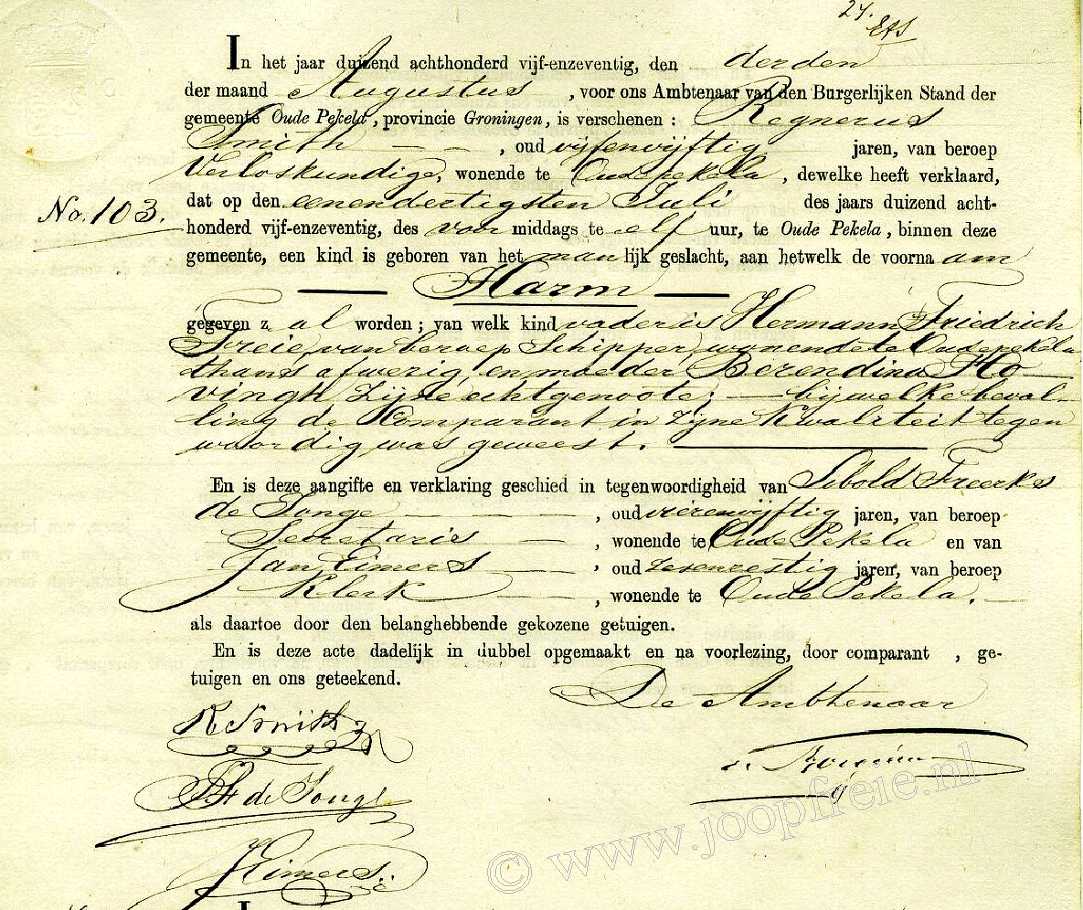 27.
In het jaar duizend achthonderd vijf-enzeventig, den derden
der maand Augustus, voor ons Ambtenaar van den Burgerlijken Stand der
gemeente Oude Pekela, provincie Groningen, is verschenen: Regnerus
Smith — —, oud vijfenvijftig jaren, van beroep
Verloskundige, wonende te Oude Pekela, dewelke heeft verklaard,
No. 103.
dat op den eenendertigsten Juli des jaars duizend acht-
honderd vijf-enzeventig, des voor middags te elf uur, te Oude Pekela, binnen deze
gemeente, een kind is geboren van het manlijk geslacht, aan hetwelk de voorna am
— Harm —
gegeven z al worden; van welk kind vader is Hermann Friedrich
Freie, van beroep Schipper, wonende te Oude pekela
thans afwezig, en moeder Berendina Ho-
vingh Zijne echtgenoote; — bij welke beval-
ling de Komparant in zijne Kwaliteit tegen
woordig was geweest. —
En is deze aangifte en verklaring geschied in tegenwoordigheid van Sibold Freerks
de Jonge — — — —, oud vierenvijftig jaren, van beroep
Secretaris —, wonende te Oude Pekela en van
Jan Eimers — —, oud zesenzestig jaren, van beroep
Klerk — —, wonende te Oude Pekela. —
als daartoe door den belanghebbende gekozene getuigen.
En is deze acte dadelijk in dubbel opgemaakt en na voorlezing, door comparant , ge-
tuigen en ons geteekend.
De Ambtenaar
R Smith
SF de Jonge
J Eimers
© www.joopfreie.nl